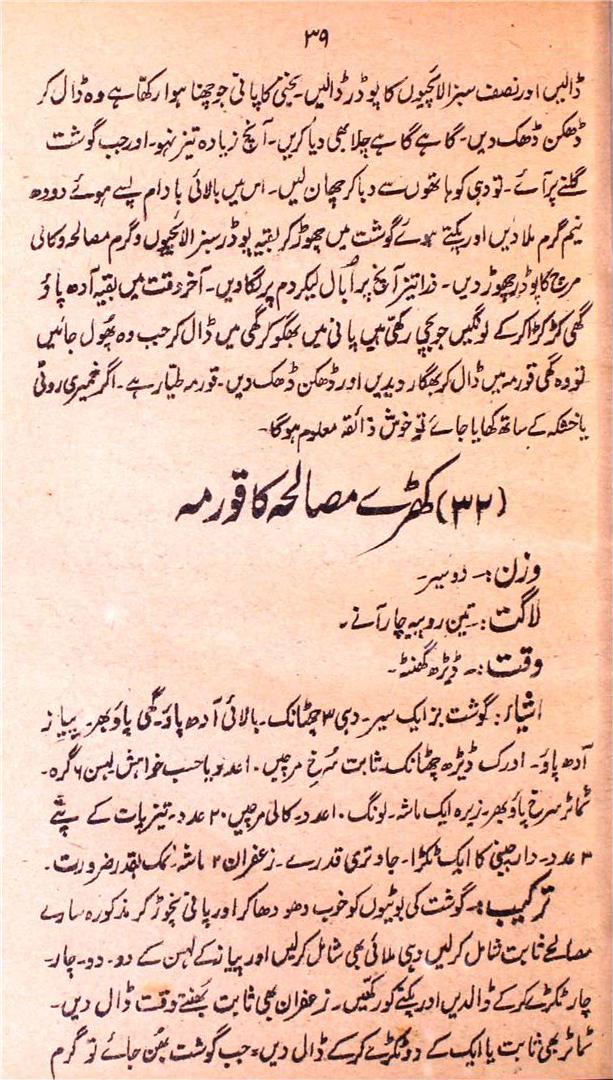 ۳۹
ڈالیں اور نصف سبز الائچیوں کا پوڈر ڈالیں۔ یخنی کا پانی جو چھنا ہوا رکھا ہے وہ ڈال کر
ڈھکن ڈھک دیں۔ گاہے گاہے چلا بھی دیا کریں۔ آنچ زیادہ تیز نہو۔ اور جب گوشت
گلنے پر آئے۔ تو دہی کو ہاتھوں سے دبا کر چھان لیں۔ اس میں بالائی بادام پسے ہوئے دودھ
نیم گرم ملا دیں اور پکتے ہوئے گوشت میں چھوڑ کر بقیہ پوڈر سبز الائچیوں و گرم مصالحہ و کالی
مرچ کا پوڈر چھوڑ دیں۔ ذرا تیز آنچ پر اُبال لیکر دم پر لگا ویں۔ آخر وقت میں بقیہ آدھ پاؤ
گھی کڑکڑا کر کے لونگیں جو بچی رکھی ہیں پانی میں بھگو کر گھی میں ڈال کر جب وہ پھول جائیں
تو وہ گھی قورمہ میں ڈال کر بھگار دیدیں اور ڈھکن ڈھک دیں۔ قورمہ طیار ہے۔ اگر خمیری روٹی
یا خشکہ کے ساتھ کھایا جائے تو خوش ذائقہ معلوم ہوگا۔
(۳۲) کھڑے مصالحہ کا قورمہ
وزن:۔ دو سیر۔
لاگت:۔ تین روپیہ چار آنے۔
وقت:۔ ڈیڑھ گھنٹہ۔
اشیاء: گوشت بز ایک سیر۔ دہی ۳ چھٹانک۔ بالائی آدھ پاؤ۔ گھی پاؤ بھر۔ پیاز
آدھ پاؤ۔ ادرک ڈیڑھ چھٹانک۔ ثابت سُرخ مرچیں ۱۰ عدد یا حسب خواہش لہسن ۶ گرہ۔
ٹماٹر سرخ پاؤ بھر۔ زیرہ ایک ماشہ۔ لونگ ۱۰ عدد۔ کالی مرچیں ۲۰ عدد۔ تیز پات کے پتے
۳ عدد۔ دار چینی کا ایک ٹکڑا۔ جاوتری قدرے۔ زعفران ۲ ماشہ۔ نمک بقدر ضرورت۔
ترکیب:۔ گوشت کی بوٹیوں کو خوب دھو دھا کر اور پانی نچوڑ کر مذکورہ سارے
مصالحے ثابت شامل کرلیں دہی ملائی بھی شامل کرلیں اور پیاز کے لہسن کے دو۔ دو۔ چار۔
چار ٹکڑے کر کے ڈالدیں اور پکنے کو رکھیں۔ زعفران بھی ثابت بھنتے وقت ڈال دیں۔
ٹماٹر بھی ثابت یا ایک کے دو ٹکڑے کر کے ڈال دیں۔ جب گوشت بھُن جائے تو گرم